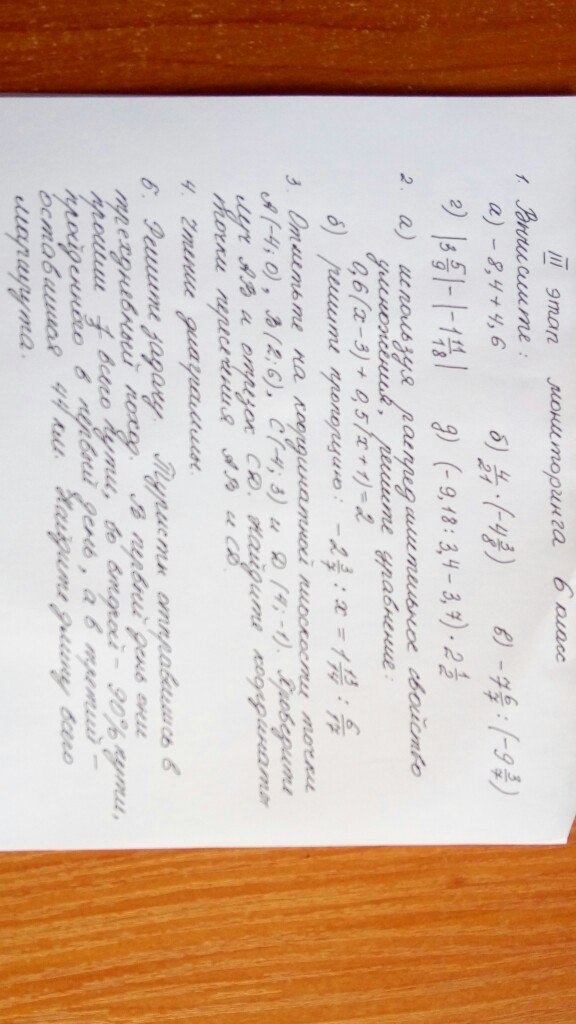 III этап мониторинга 6 класс
1. Вычислите:
а) -8,4+4,6 б) 4/21 · (-4 3/8) в) -7 6/7 : (-9 3/7)
г) |3 5/9| - |-1 11/18| д) (-9,18 : 3,4 - 3,7) · 2 1/2
2. а) используя распределительное свойство
умножения, решите уравнение:
0,6(x-3) + 0,5(x+1) = 2
б) решите пропорцию: : x = 1 13/14 : 6/17
3. Отметьте на координатной плоскости точки
A(-4;0), B(2;6), C(-4;3) и D(4;-1). Проведите
луч AB и отрезок CD. Найдите координаты
точки пересечения AB и CD.
4. Чтение диаграмм.
6. Решите задачу. Туристы отправились в
трехдневный поход. В первый день они
прошли всего пути, во второй - 90% пути,
пройденного в первый день, а в третий -
оставшиеся 44 км. Найдите длину всего
маршрута.